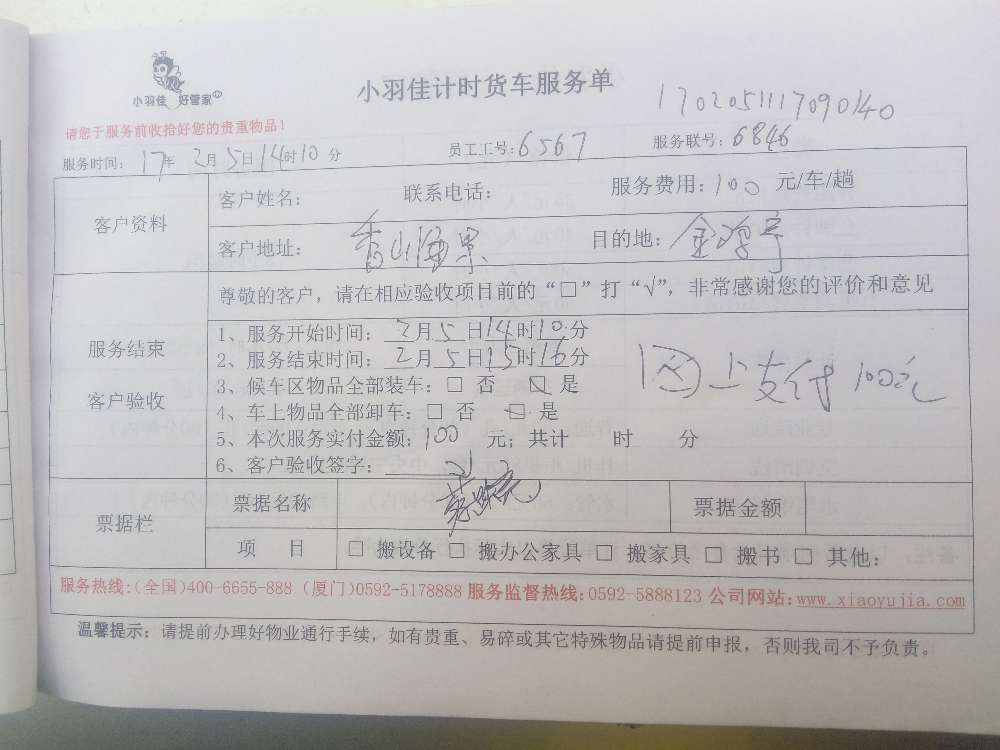 小羽佳 好管家
小羽佳计时货车服务单
1702051117090140
请您于服务前收拾好您的贵重物品！
服务时间：17年 2月5日14时10分 员工工号：6567 服务联号：6846
客户资料
客户姓名： 联系电话： 服务费用：100 元/车/趟
客户地址：香山海景 目的地：金
尊敬的客户，请在相应验收项目前的“□”打“√”，非常感谢您的评价和意见
服务结束
客户验收
1、服务开始时间：2月5日14时10分
2、服务结束时间：2月5日15时16分
3、候车区物品全部装车：□ 否 □ 是
4、车上物品全部卸车：□ 否 □ 是
5、本次服务实付金额：100 元；共计 时 分
6、客户验收签字：
网上支付100元
票据栏
票据名称 票据金额
项 目 □ 搬设备 □ 搬办公家具 □ 搬家具 □ 搬书 □ 其他：
服务热线：(全国)400-6655-888 (厦门)0592-5178888 服务监督热线：0592-5888123 公司网站：www.xiaoyujia.com
温馨提示：请提前办理好物业通行手续，如有贵重、易碎或其它特殊物品请提前申报，否则我司不予负责。